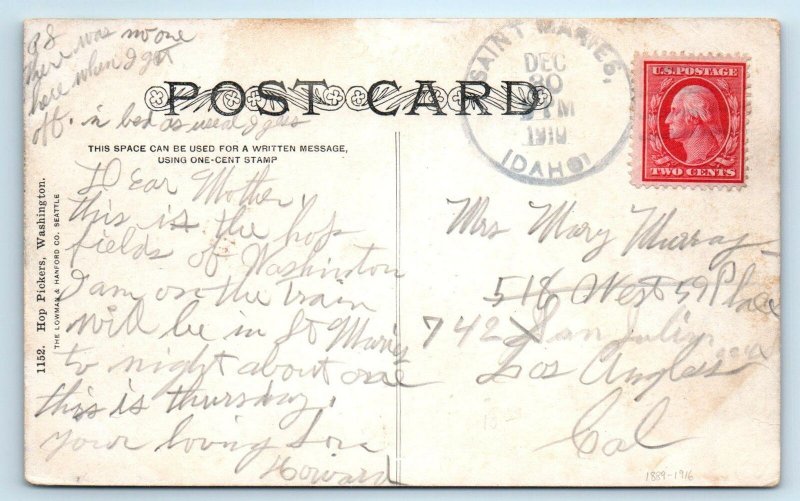 PS
there was no one
here when I got
off. in bed as used I gess
POST CARD
THIS SPACE CAN BE USED FOR A WRITTEN MESSAGE,
USING ONE-CENT STAMP
1152. Hop Pickers, Washington.
THE LOWMAN & HANFORD CO. SEATTLE
Dear Mother,
this is the hop
fields of Washington
I am on the train
will be in St Maries
to night about one
this is thursday.
your loving Son
Howard
SAINT MARIES,
DEC
30
PM
1910
IDAHO
U.S. POSTAGE
TWO CENTS
Mrs Mary Murray
518 West 59 Place
742 San Julian
Los Angles
Cal
1889-1916